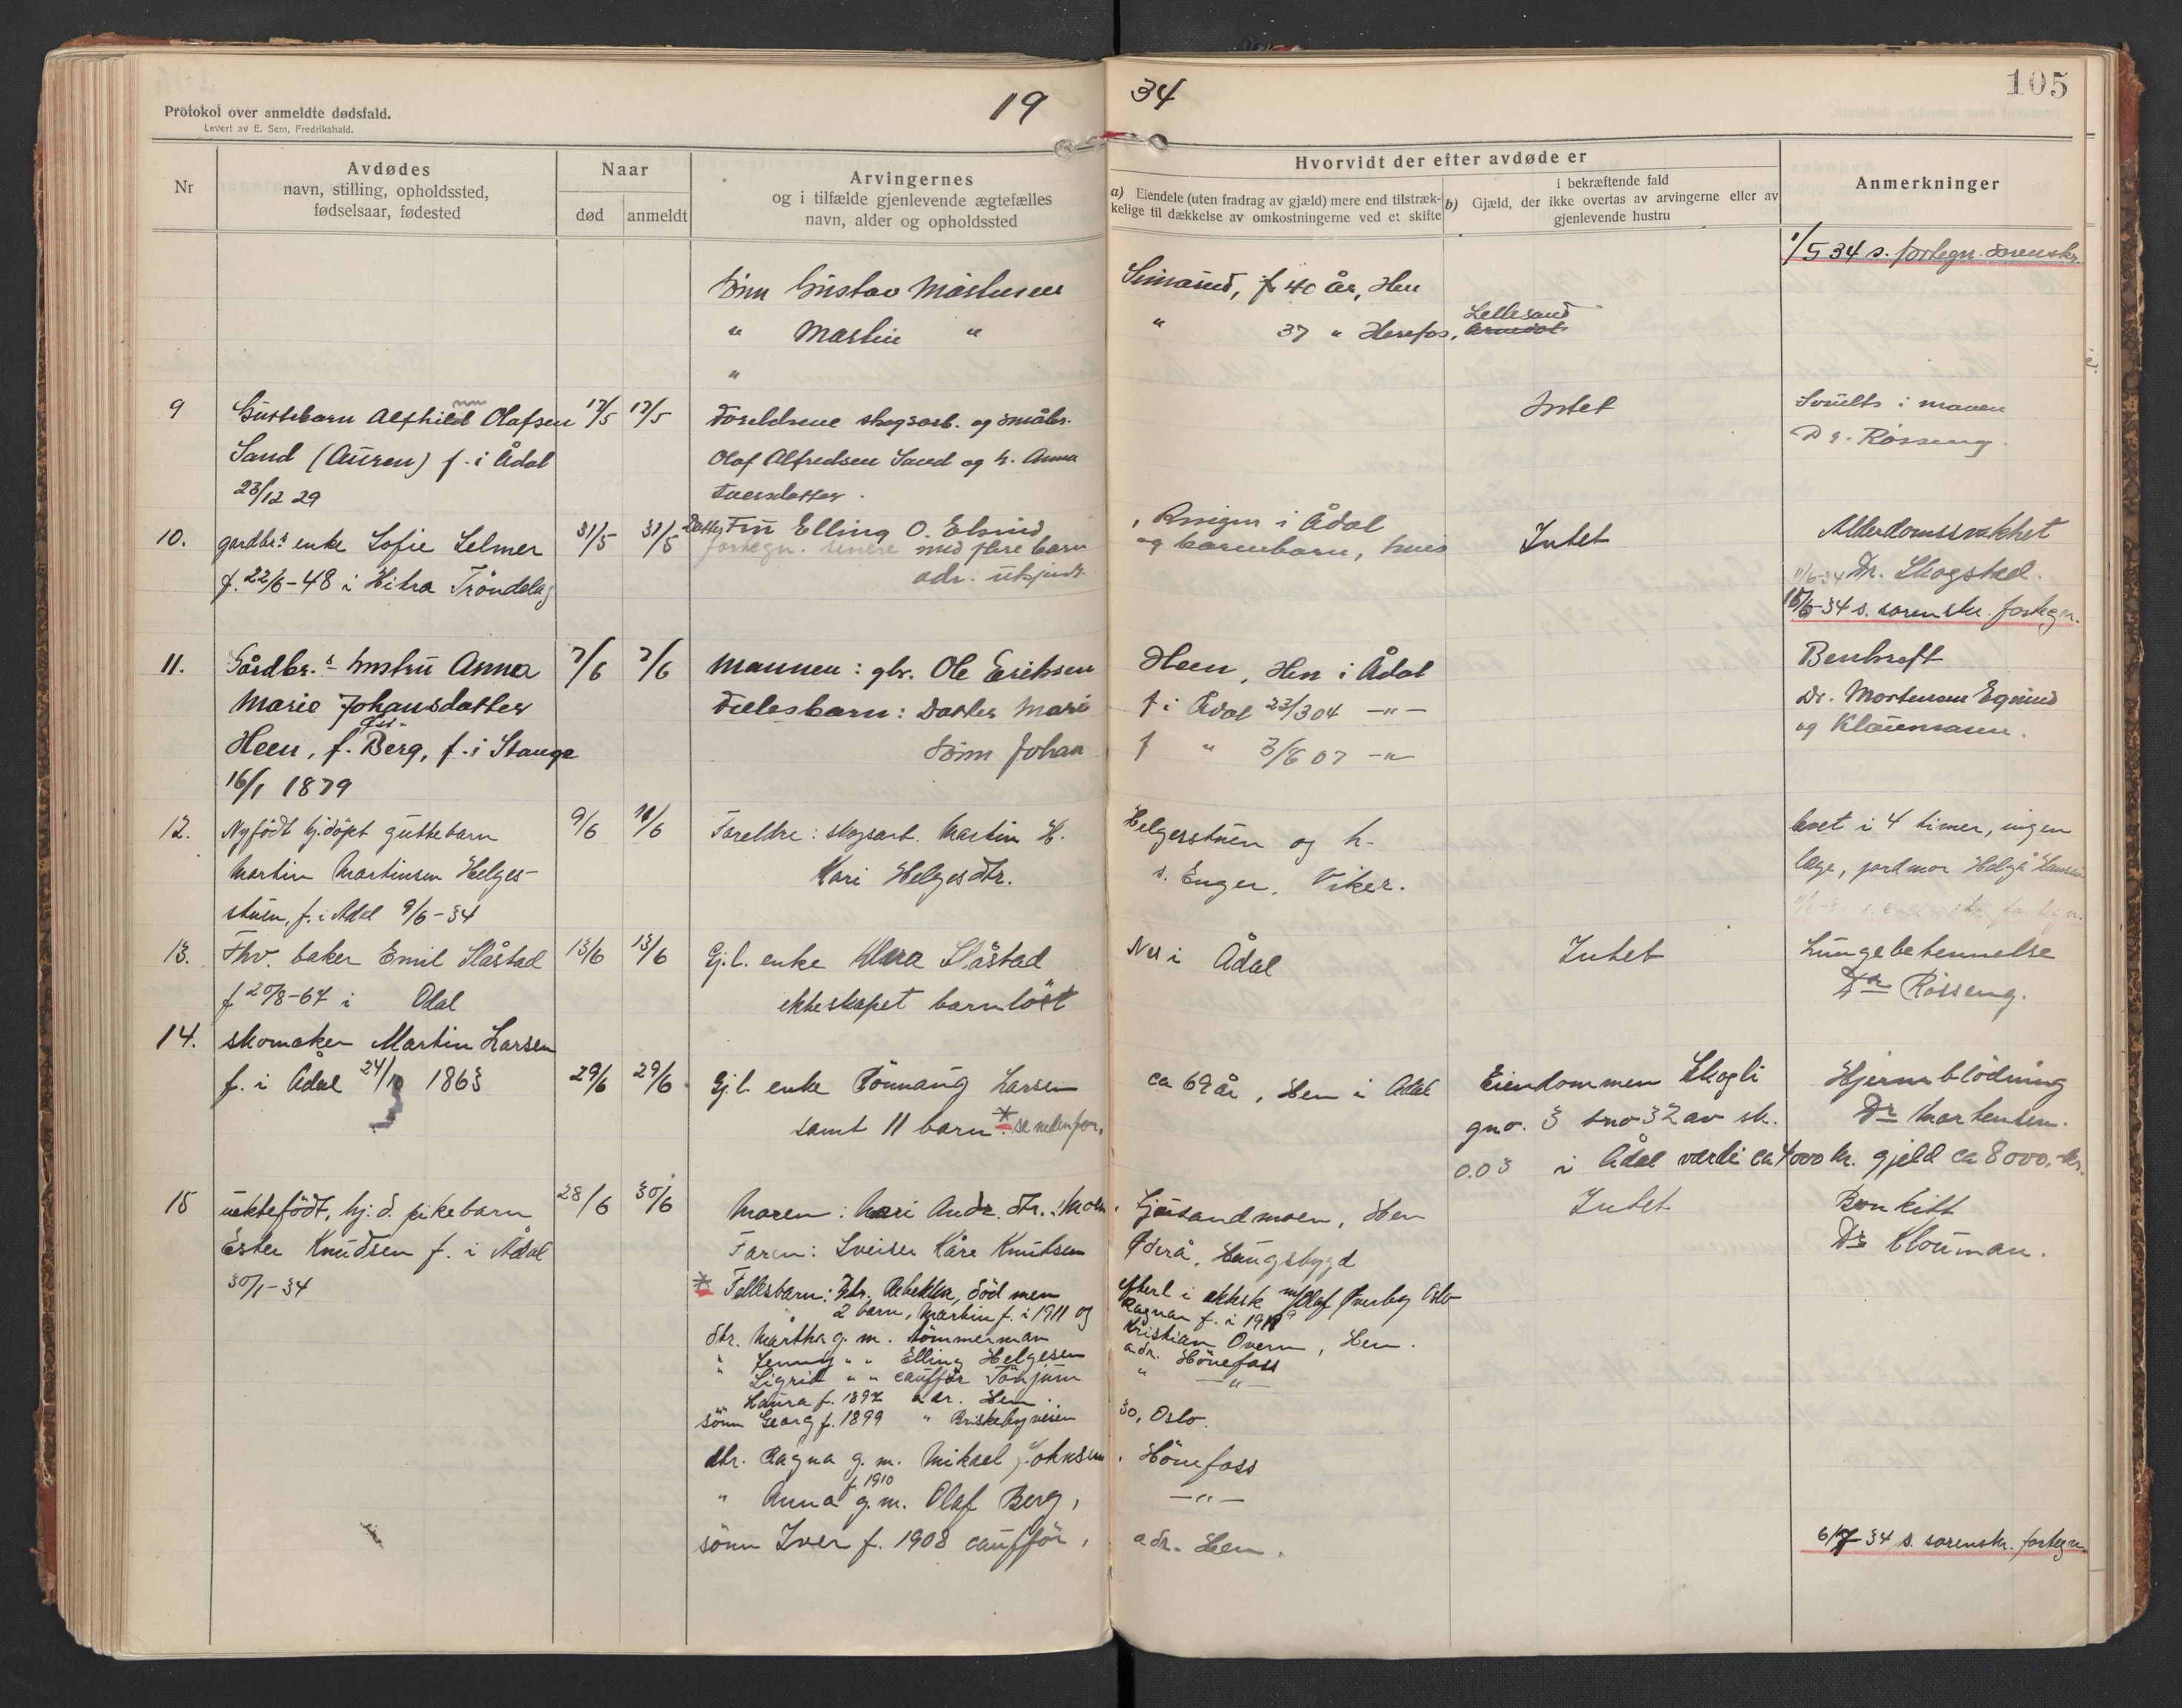 Protokol over anmeldte dødsfald.
Levert av E. Sem, Fredrikshald.
19 34
105
Nr
Avdødes
navn, stilling, opholdssted,
fødselsaar, fødested
Naar
død anmeldt
Arvingernes
og i tilfælde gjenlevende ægtefælles
navn, alder og opholdssted
Hvorvidt der efter avdøde er
a) Eiendele (uten fradrag av gjæld) mere end tilstræk-
kelige til dækkelse av omkostningerne ved et skifte
i bekræftende fald
b) Gjæld, der ikke overtas av arvingerne eller av
gjenlevende hustru
Anmerkninger
1/5 34 s. fortegn. sorenskr.
Sönn Gustav Mathisen
40 år, Hen
" Martin "
" 37 " Herefos, Lillesand
"
9 Guttebarn Alfhild Olafsen 17/5 17/5 Foreldrene skogsarb. og småbr. Intet Svults i maven
Sand (Auren) f. i Ådal Olaf Alfredsen Sand og h. Anna Dr. Rosseng.
23/12 29 Iversdatter.
10. gardbr.s enke Sofie Selmer 31/5 31/5 Datter Fru Elling O. Elsrud, Ringen i Ådal Intet Alderdomssvakhet
fortegn. senere med flere barn og barnebarn, hvis 11/6-34 Dr. Skogstad.
f. 22/6-48 i Hitra Tröndelag adr. ukjendt. 15/6-34 s. sorenskr. fortegn.
11. Gårdbr.s hustru Anna 7/6 7/6 Mannen: gbr. Ole Eriksen Heen, Hen i Ådal Benkreft
Marie Johansdatter Fellesbarn: Datter Marie f i Ådal 23/3 04 -"- Dr. Mortensen Egnund
Heen, f. Berg, f. i Stange Sönn Johan f " 3/8 07 -"- og Kloumann.
16/1 1879
12. Nyfödt hj.döpt guttebarn 9/6 11/6 Foreldre: skogsarb. Martin H. Helgesstuen og h. levet i 4 timer, ingen
Martin Martinsen Helges- Kari Helgesdtr. s. Enger, Viker. læge, jordmor Helga Hansen
stuen, f. i Adal 9/6-34
13. Fhv. baker Emil Slåstad 13/6 13/6 Gj.l. enke Klara Slåstad Nes i Ådal Intet Lungebetennelse
f 20/8-67 i Odal ekteskapet barnlöst Dr Rosseng.
14. skomaker Martin Larsen
f. i Ådal 24/10 1863 29/6 29/6 Gj.l. enke Rönnaug Larsen ca 69 år, Hen i Adal Eiendommen Skogli Hjerneblödning
samt 11 barn * se nedenfor. gno. 3 bno 32 av sk. Dr Mortensen.
0.03 i Ådal værdi ca 4000 kr. gjeld ca 8000,- kr.
15 uektefödt, hj.d. pikebarn 28/6 30/6 Moren: Mari Andr.dtr. Moen, Gjersandmoen, Hen Intet Bronkitt
Ester Knudsen f. i Ådal Faren: Sveiser Kåre Knutsen Aderå, Haugsbygd Dr Klouman.
30/1-34
* Fellesbarn: Dtr. Rebekka, död men efterl i ektesk m/Olaf Överby Oslo
2 barn, Martin f. i 1911 og Ragnar f. i 1919
dtr. Martha g. m. tömmerman Kristian Overn, Hen.
" Jenny " " Elling Helgesen adr. Hönefoss
" Sigrid " " caufför Tönjum " -"-
" Laura f. 1897 adr. Hen.
sönn Georg f. 1899 " Briskebyveien 30, Oslo.
dtr. Ragna g. m. Mikael Johnsen, Hönefoss
" Anna f. 1910 g.m. Olaf Berg, -"-
sönn Iver f. 1908 caufför, adr. Hen.
6/7-34 s. sorenskr. fortegn.